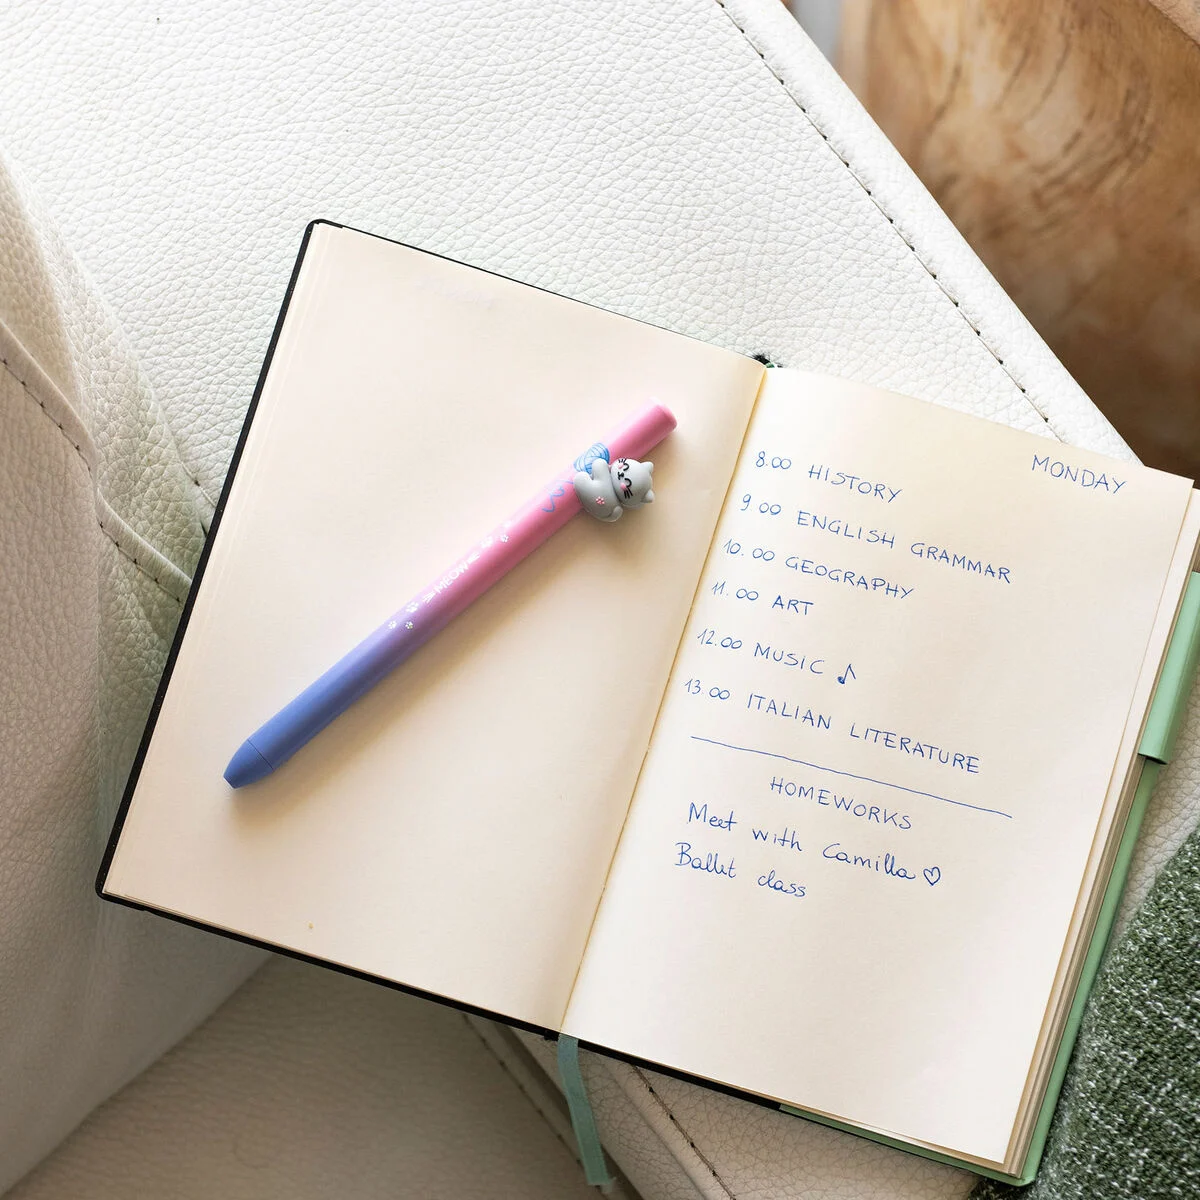 MEOW
MONDAY
8.00 HISTORY
9 00 ENGLISH GRAMMAR
10.00 GEOGRAPHY
11.00 ART
12.00 MUSIC ♪
13.00 ITALIAN LITERATURE
HOMEWORKS
Meet with Camilla ♡
Ballet class